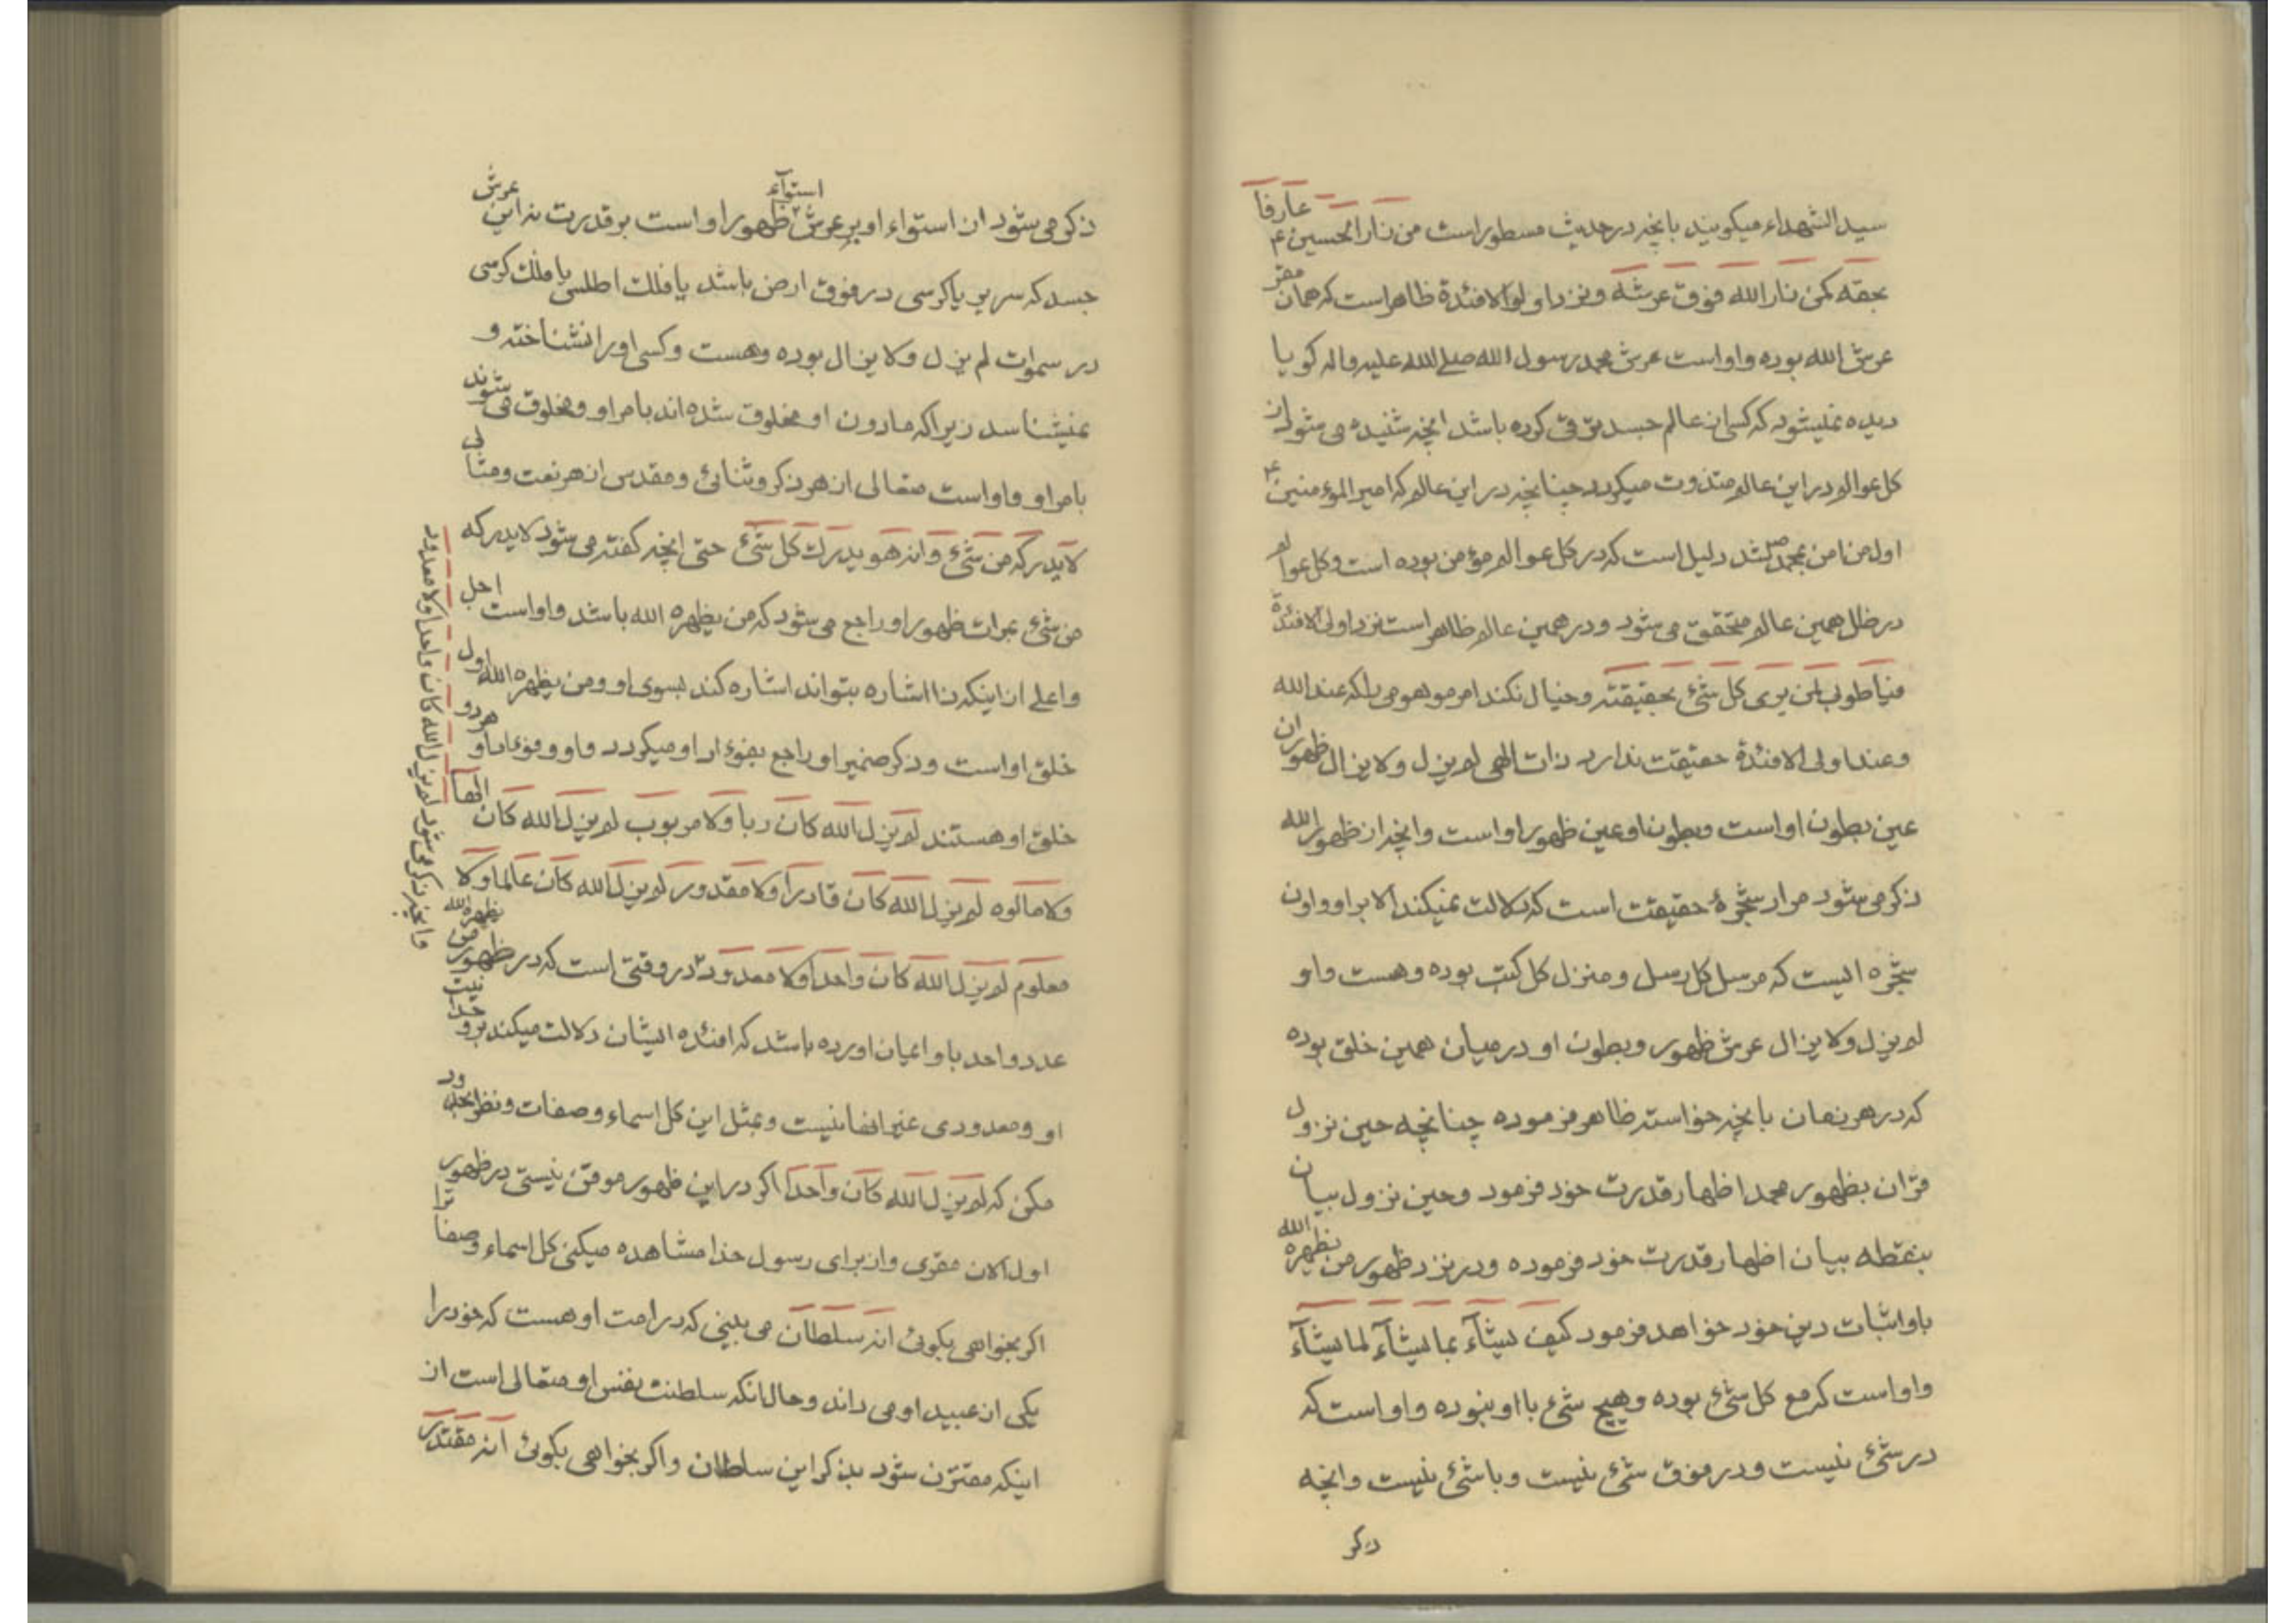 سید الشهداء میکویند بانچه در حدیث مسطور است من زار الحسین ع عارفا
بحقه کمن زار الله فوق عرشه ونزد اولوا الافئدة ظاهر است که همان مقر
عرش الله بوده واو است عرش محمد رسول الله صلی الله علیه واله کویا
دیده نمیشود که کسی از عالم جسد ترقی کرده باشد انچه شنیده می شود از
کل عوالم در این عالم متذوت میکردد چنانچه در این عالم که امیر المؤمنین ع
اول من امن بمحمد ص شد دلیل است که در کل عوالم مؤمن بوده است وکل عوالم
در ظل همین عالم متحقق می شود ودر همین عالم ظاهر است نزد اولی الافئدة
فیا طوبی لمن یری کل شئ بحقیقته وخیال نکند امر موهومی را که عند الله
وعند اولی الافئدة حقیقت ندارد ذات الهی لم یزل ولا یزال ظهور ان
عین بطون او است وبطون او عین ظهور او است وانچه از ظهور الله
ذکر می شود مراد شجرۀ حقیقت است که دلالت نمیکند الا بر او واون
شجره ایست که مرسل کل رسل ومنزل کل کتب بوده وهست واو
لم یزل ولا یزال عرش ظهور وبطون او در میان همین خلق بوده
که در هر زمان بانچه خواسته ظاهر فرموده چنانچه حین نزول
قران بظهور محمد اظهار قدرت خود فرمود وحین نزول بیان
بنقطه بیان اظهار قدرت خود فرموده ودر نزد ظهور من یظهره الله
باو اثبات دین خود خواهد فرمود کیف یشآء بما یشآء لما یشآء
واو است که مع کل شئ بوده وهیچ شئ با او نبوده واو است که
در شئ نیست ودر فوق شئ نیست وبا شئ نیست وانچه
ذکر
ذکر می شود از استواء او بر عرش استوآء ظهور او است بر قدرت نه این عرش
جسد که سریر یا کرسی در فوق ارض باشد یا فلک اطلس یا فلک کرسی
در سموات لم یزل ولا یزال بوده وهست وکسی اورا نشناخته و
نمیشناسد زیرا که مادون او مخلوق شده اند بامر او ومخلوق می شوند
بامر او واو است متعالی از هر ذکر وثنائی ومقدس از هر نعت ومثالی
لا یدرکه من شئ وانه هو یدرک کل شئ حتی انچه کفته می شود لا یدرکه
من شئ بمرات ظهور او راجع می شود که من یظهره الله باشد واو است اجل
واعلی از اینکه ذا اشاره بتواند اشاره کند بسوی او ومن یظهره الله اول
خلق او است وذکر ضمیر او راجع بفؤاد او میکردد واو وفؤاد او هر دو
خلق او هستند لم یزل الله کان ربا ولا مربوب لم یزل الله کان الها
ولا مالوه لم یزل الله کان قادرا ولا مقدور لم یزل الله کان عالما ولا
معلوم لم یزل الله کان واحدا ولا معدود در وقتی است که در ظهور من یظهره الله
عدد واحد باو ایمان اورده باشد که افئده ایشان دلالت میکند بر و
او ومعدودی غیر انها نیست وبمثل این کل اسماء وصفات ونظر
مکن که لم یزل الله کان واحدا اکر در این ظهور موقن نیستی در ظهور
اول الان مقری واز برای رسول خدا مشاهده میکنی کل اسماء وصفات را
اکر بخواهی بکوئی انه سلطان می بینی که در امت او هست که خود را
یکی از عبید او می داند وحال انکه سلطنت بنفس او متعالی است از
اینکه مقترن شود بذکر این سلطان واکر بخواهی بکوئی انه مقتدر
وانچه ذکر می شود لم یزل الله کان واحدا ولا معدود